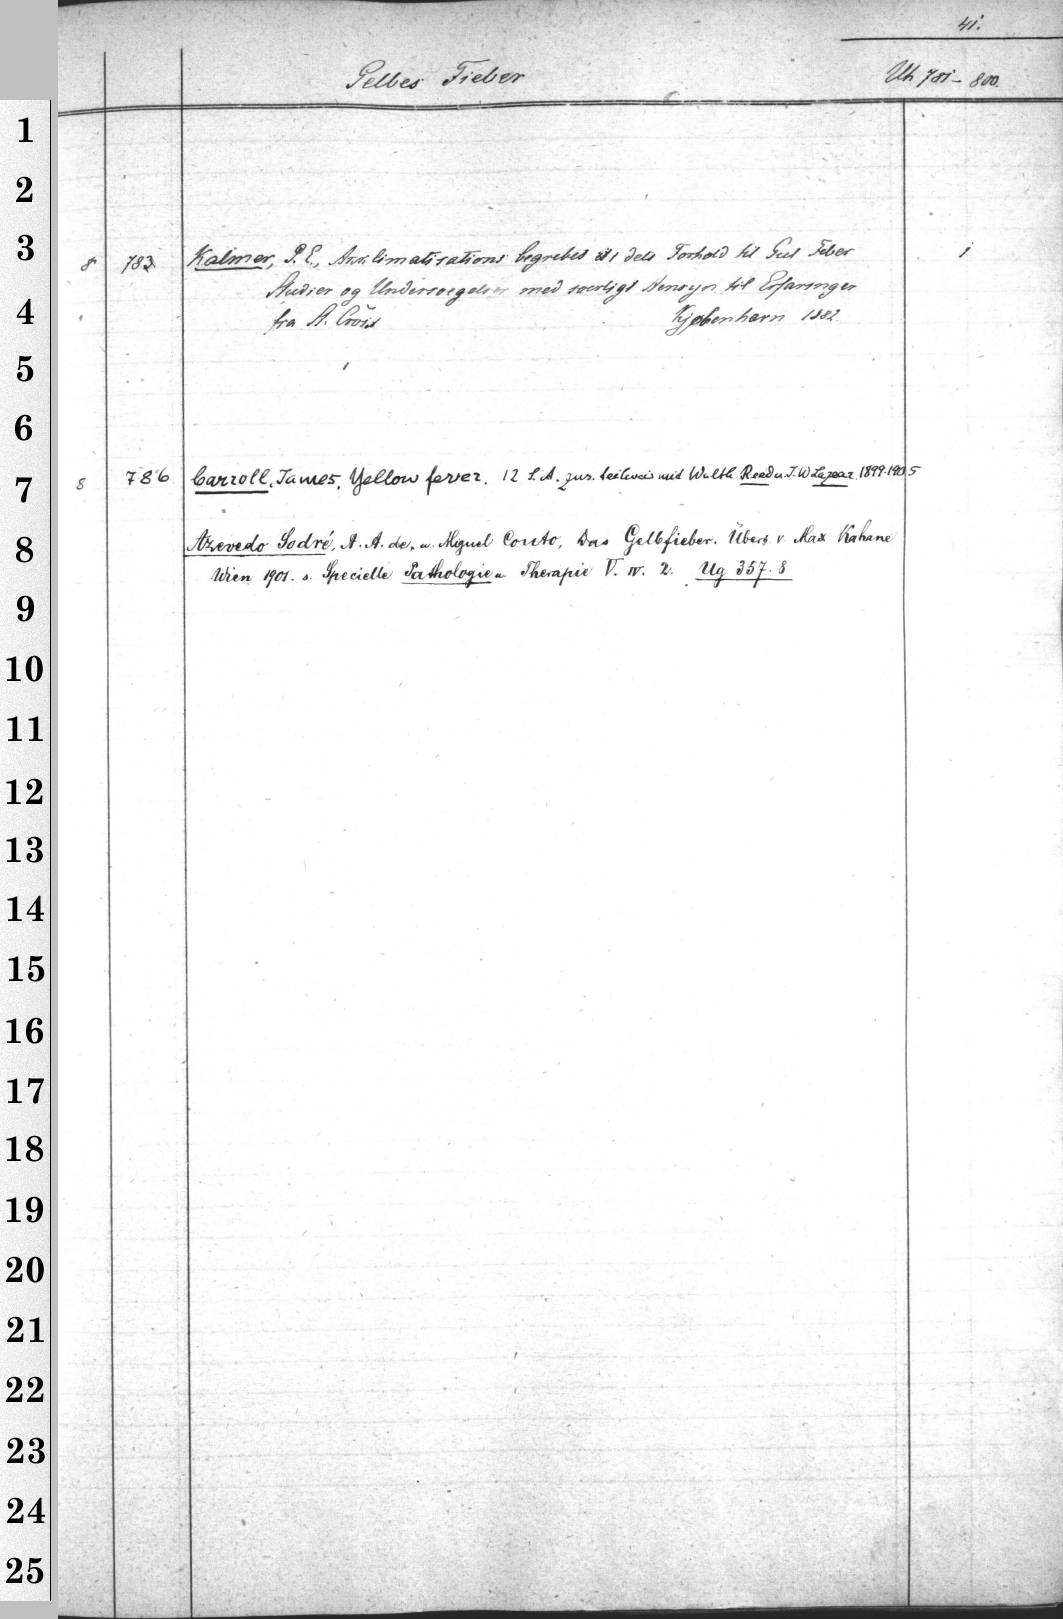 41.
Gelbes Fieber
Uh 781-800.
1
2
3
8 783 Kalmer, P. E., Akklimatisations begrebet i dets Forhold til Gul Feber
Studier og Undersoegelser med saerligt Hensyn til Erfaringer
4
fra St. Croix Kjøbenhavn 1882
1
5
6
7
8 786 Carroll, James, Yellow fever. 12 S. A. zus. teilweis mit Walth. Reed u. J. W Lazear 1899-1905
8
Azevedo Sodré, A. A. de, u. Miguel Couto, Das Gelbfieber. Übers v. Max Kahane
Wien 1901. s. Specielle Pathologie u. Therapie V. IV. 2. Ug 357. 8
9
10
11
12
13
14
15
16
17
18
19
20
21
22
23
24
25